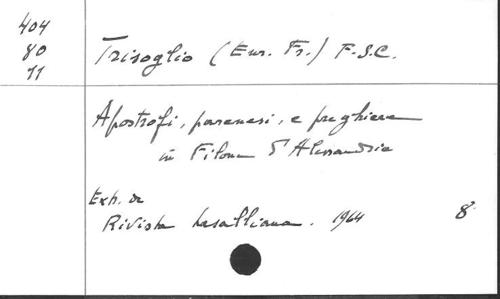 404
80
11
Trisoglio (Eur. Fr.) F.S.C.
Apostrofi, parenesi, e preghiere
in Filone d'Alessandria
Extr. de
Rivista Lasalliana. 1964 8°